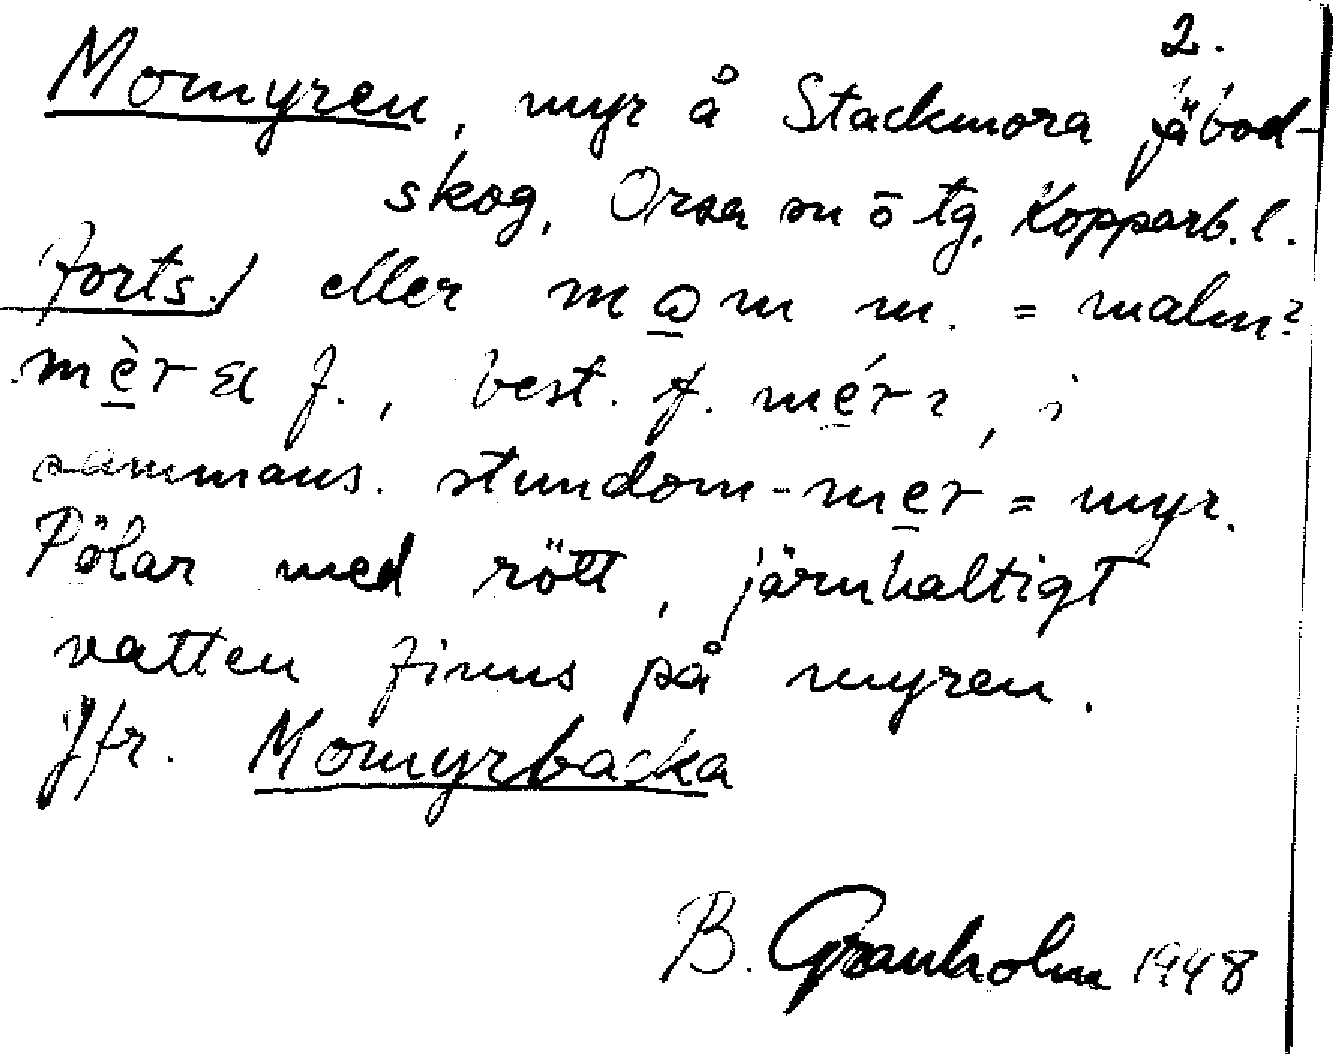 2.
Momyren, myr å Stackmora fäbod-
skog, Orsa sn ö tg, Kopparb. l.
forts./ eller mom m. = malm?
f., best. f. i
sammans. stundom -mer = myr.
Pölar med rött, järnhaltigt
vatten finns på myren.
Jfr. Momyrbacka
B. Granholm 1948